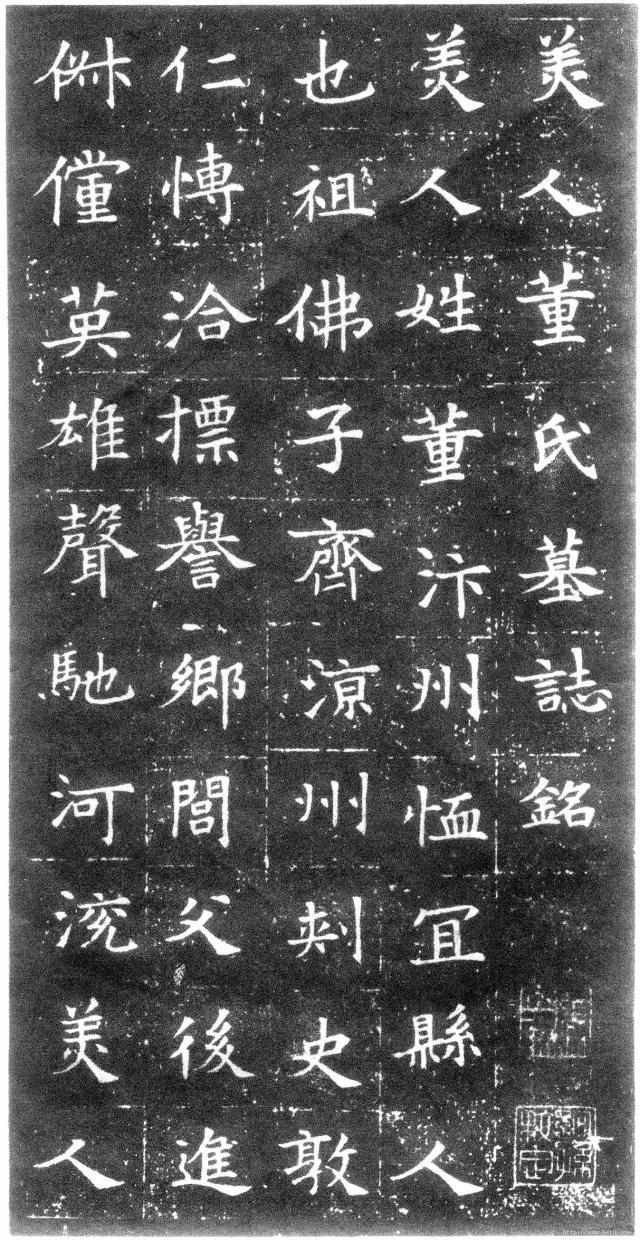 美人董氏墓誌銘
美人姓董汴州恤冝縣人
也祖佛子齊涼州刺史敦
仁博洽摽譽鄉閭父後進
俶儻英雄聲馳河渷美人